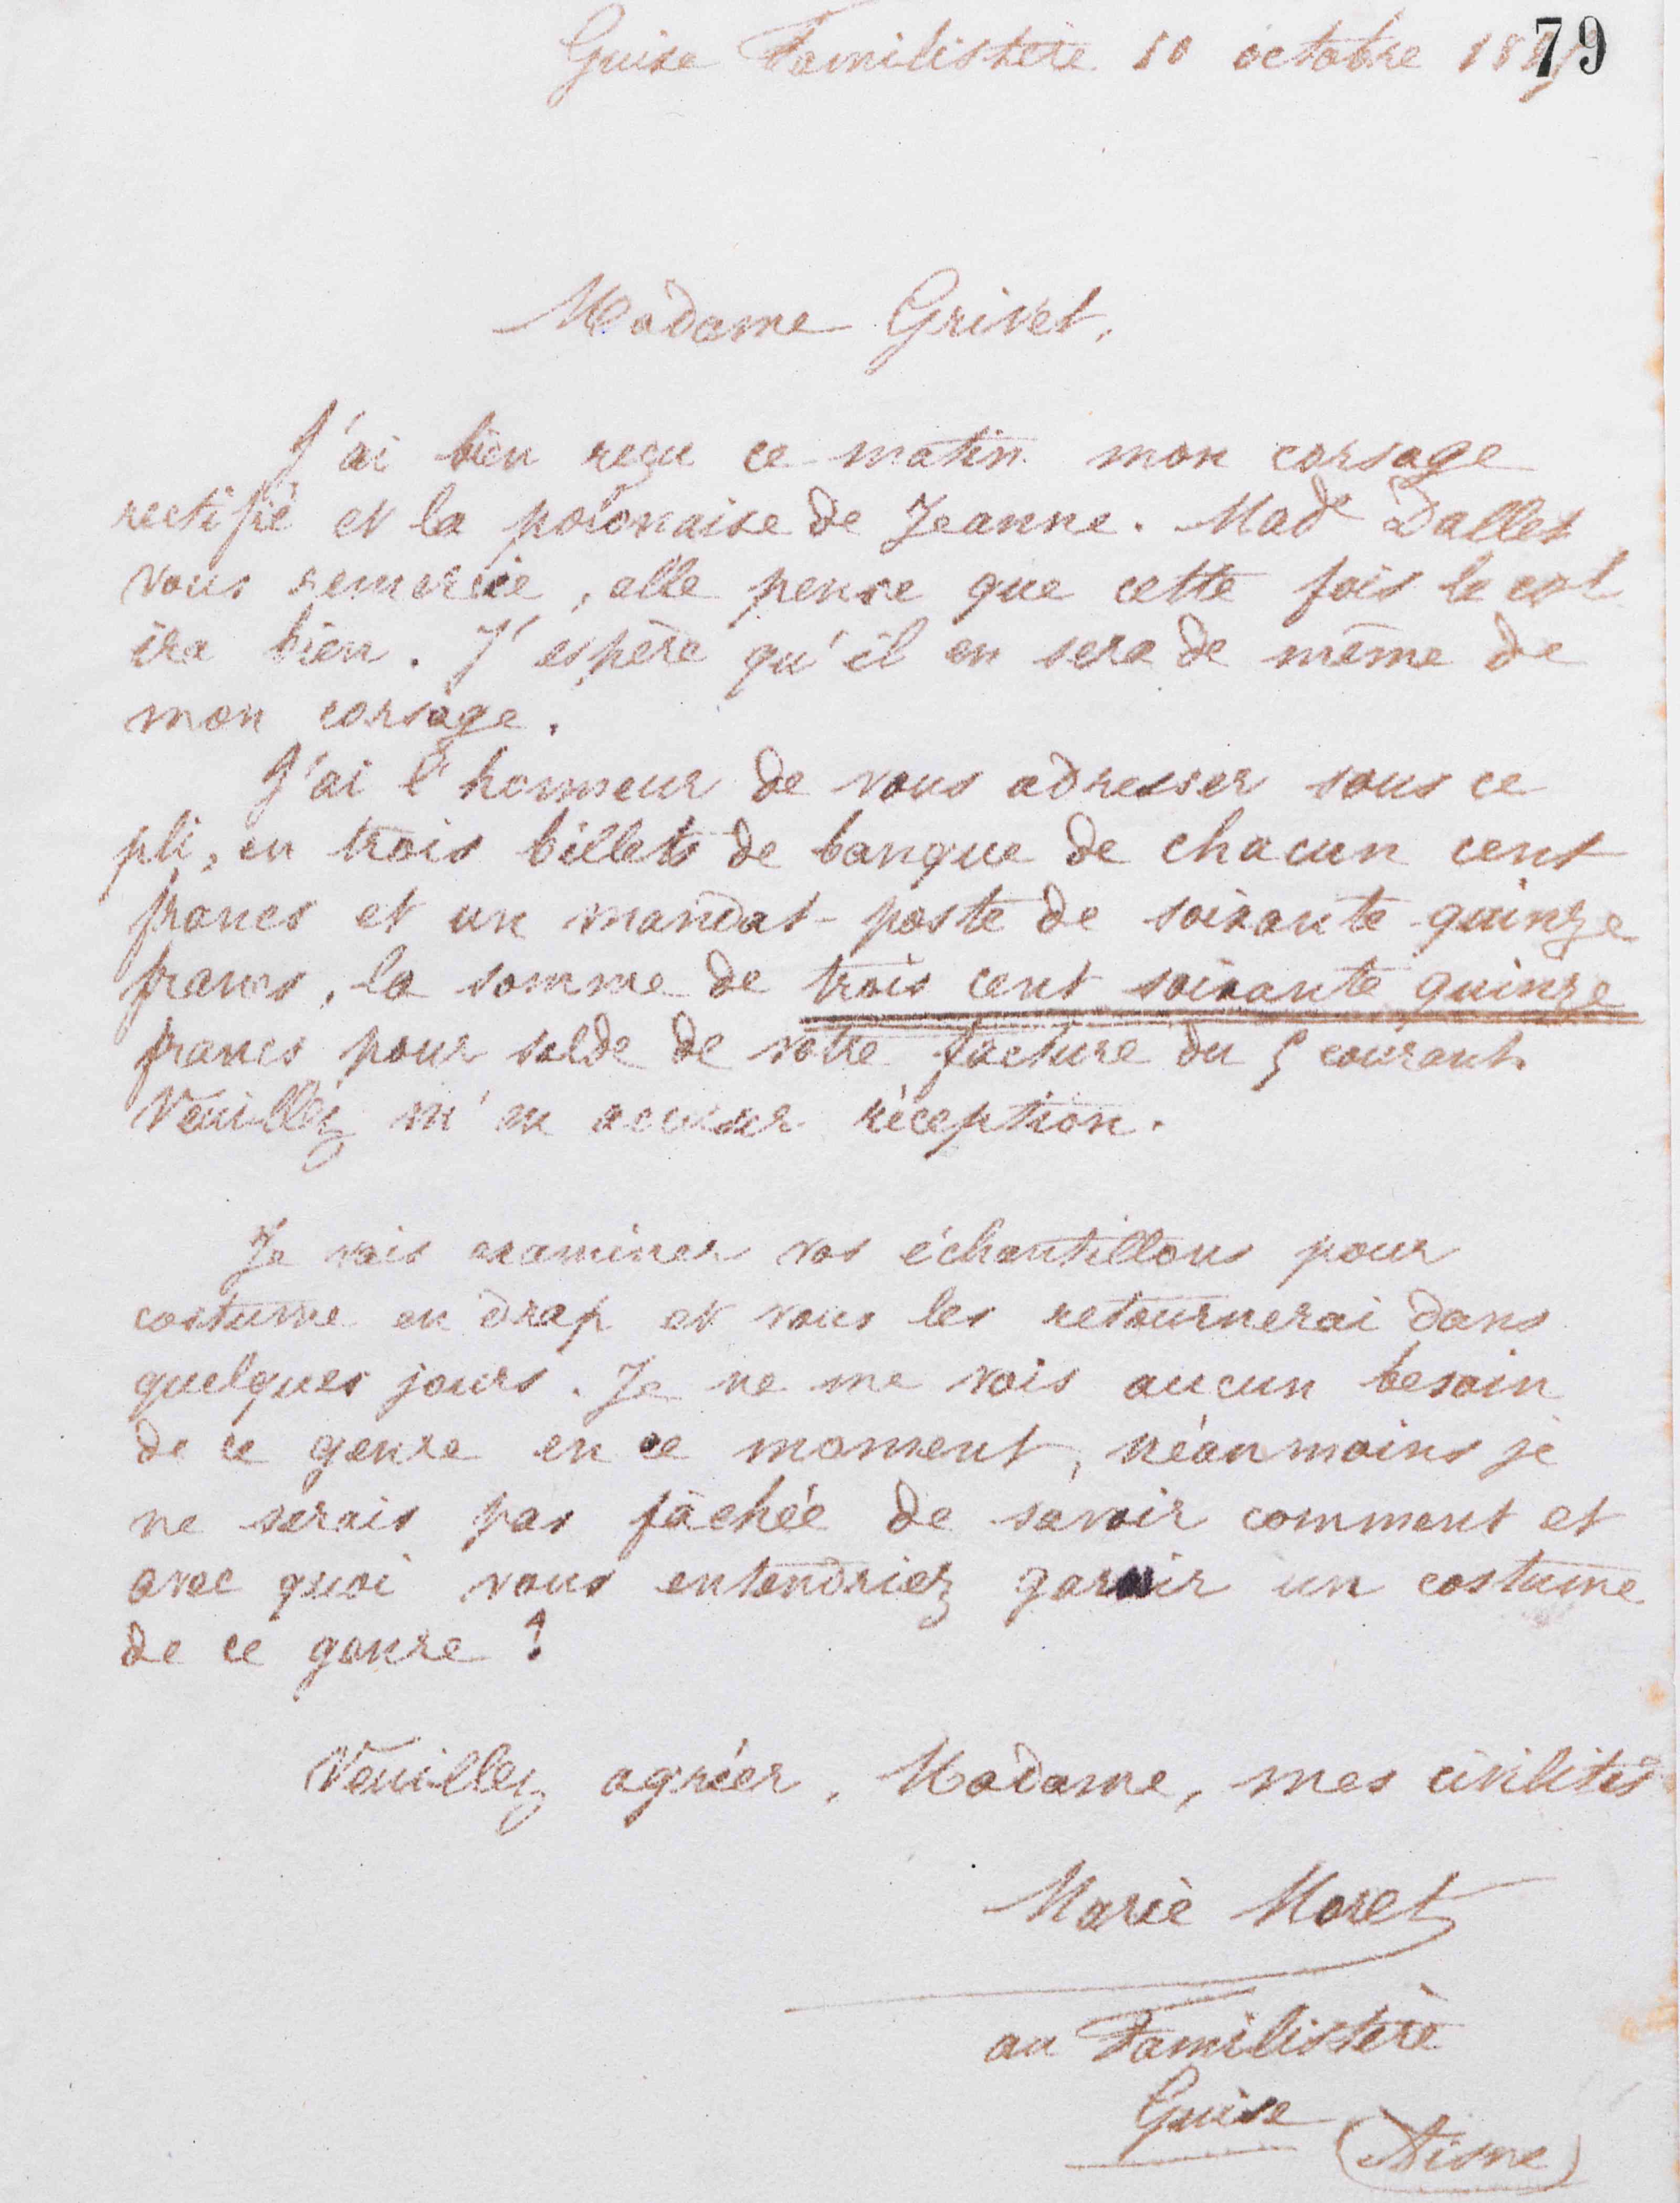 Guise Familistère 10 octobre
79
Madame Grivet,
J'ai bien reçu ce matin mon corsage
rectifié et la polonaise de Jeanne. Made Dallet
vous remercie, elle pense que cette fois le col
ira bien. J'espère qu'il en sera de même de
mon corsage.
J'ai l'honneur de vous adresser sous ce
pli, en trois billets de banque de chacun cent
francs et un mandat-poste de soixante quinze
francs, la somme de trois cent soixante quinze
francs pour solde de votre facture du 5 courant.
Veuillez m'en accuser réception.
Je vais examiner vos échantillons pour
costume en drap et vous les retournerai dans
quelques jours. Je ne me vois aucun besoin
de ce genre en ce moment, néanmoins je
ne serais pas fâchée de savoir comment et
avec quoi vous entendriez garnir un costume
de ce genre ?
Veuillez agréer, Madame, mes civilités
Marie Moret
au Familistère
Guise
(Aisne)